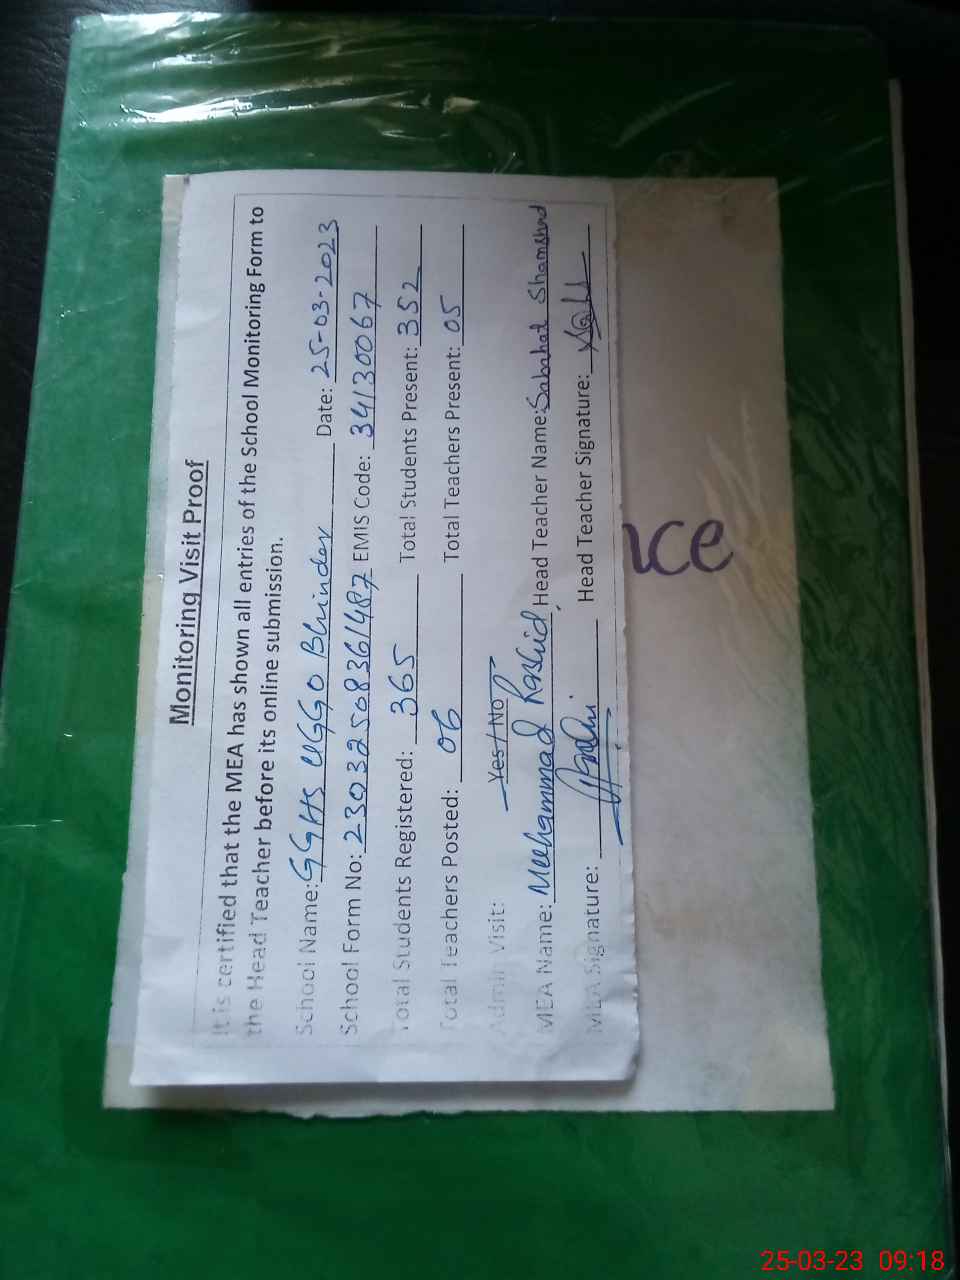 Monitoring Visit Proof
It is certified that the MEA has shown all entries of the School Monitoring Form to
the Head Teacher before its online submission.
School Name: GGHS UGGO Bhinder Date: 25-03-2023
School Form No: 23032508361487 EMIS Code: 34130067
Total Students Registered: 365 Total Students Present: 352
Total Teachers Posted: 06 Total Teachers Present: 05
Admin Visit: Yes / No
MEA Name: Muhammad Rashid Head Teacher Name: Sabahat Shamshad
MEA Signature: Head Teacher Signature:
nce
25-03-23 09:18